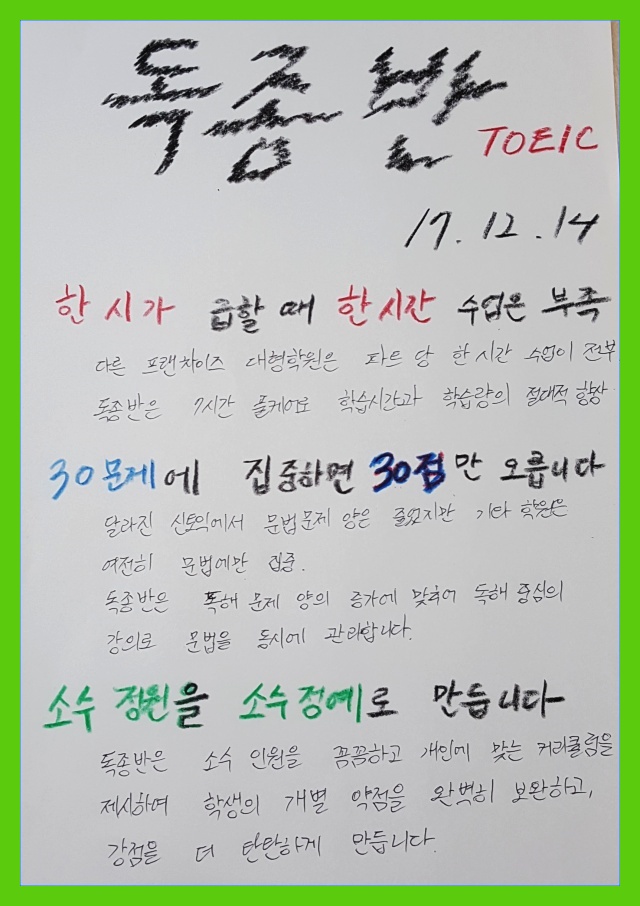 독종반
TOEIC
17.12.14
한시가 급할 때 한시간 수업은 부족
다른 프랜차이즈 대형학원은 파트 당 한시간 수업이 전부
독종반은 7시간 풀케어로 학습시간과 학습량의 절대적 향상
30문제에 집중하면 30점만 오릅니다
달라진 신토익에서 문법문제 양은 줄었지만 기타 학원은
여전히 문법에만 집중.
독종반은 독해 문제 양의 증가에 맞춰 독해 중심의
강의로 문법을 동시에 관리합니다.
소수 정원을 소수정예로 만듭니다
독종반은 소수 인원을 꼼꼼하고 개인에 맞는 커리큘럼을
제시하여 학생의 개별 약점을 완벽히 보완하고,
강점을 더 탄탄하게 만듭니다.